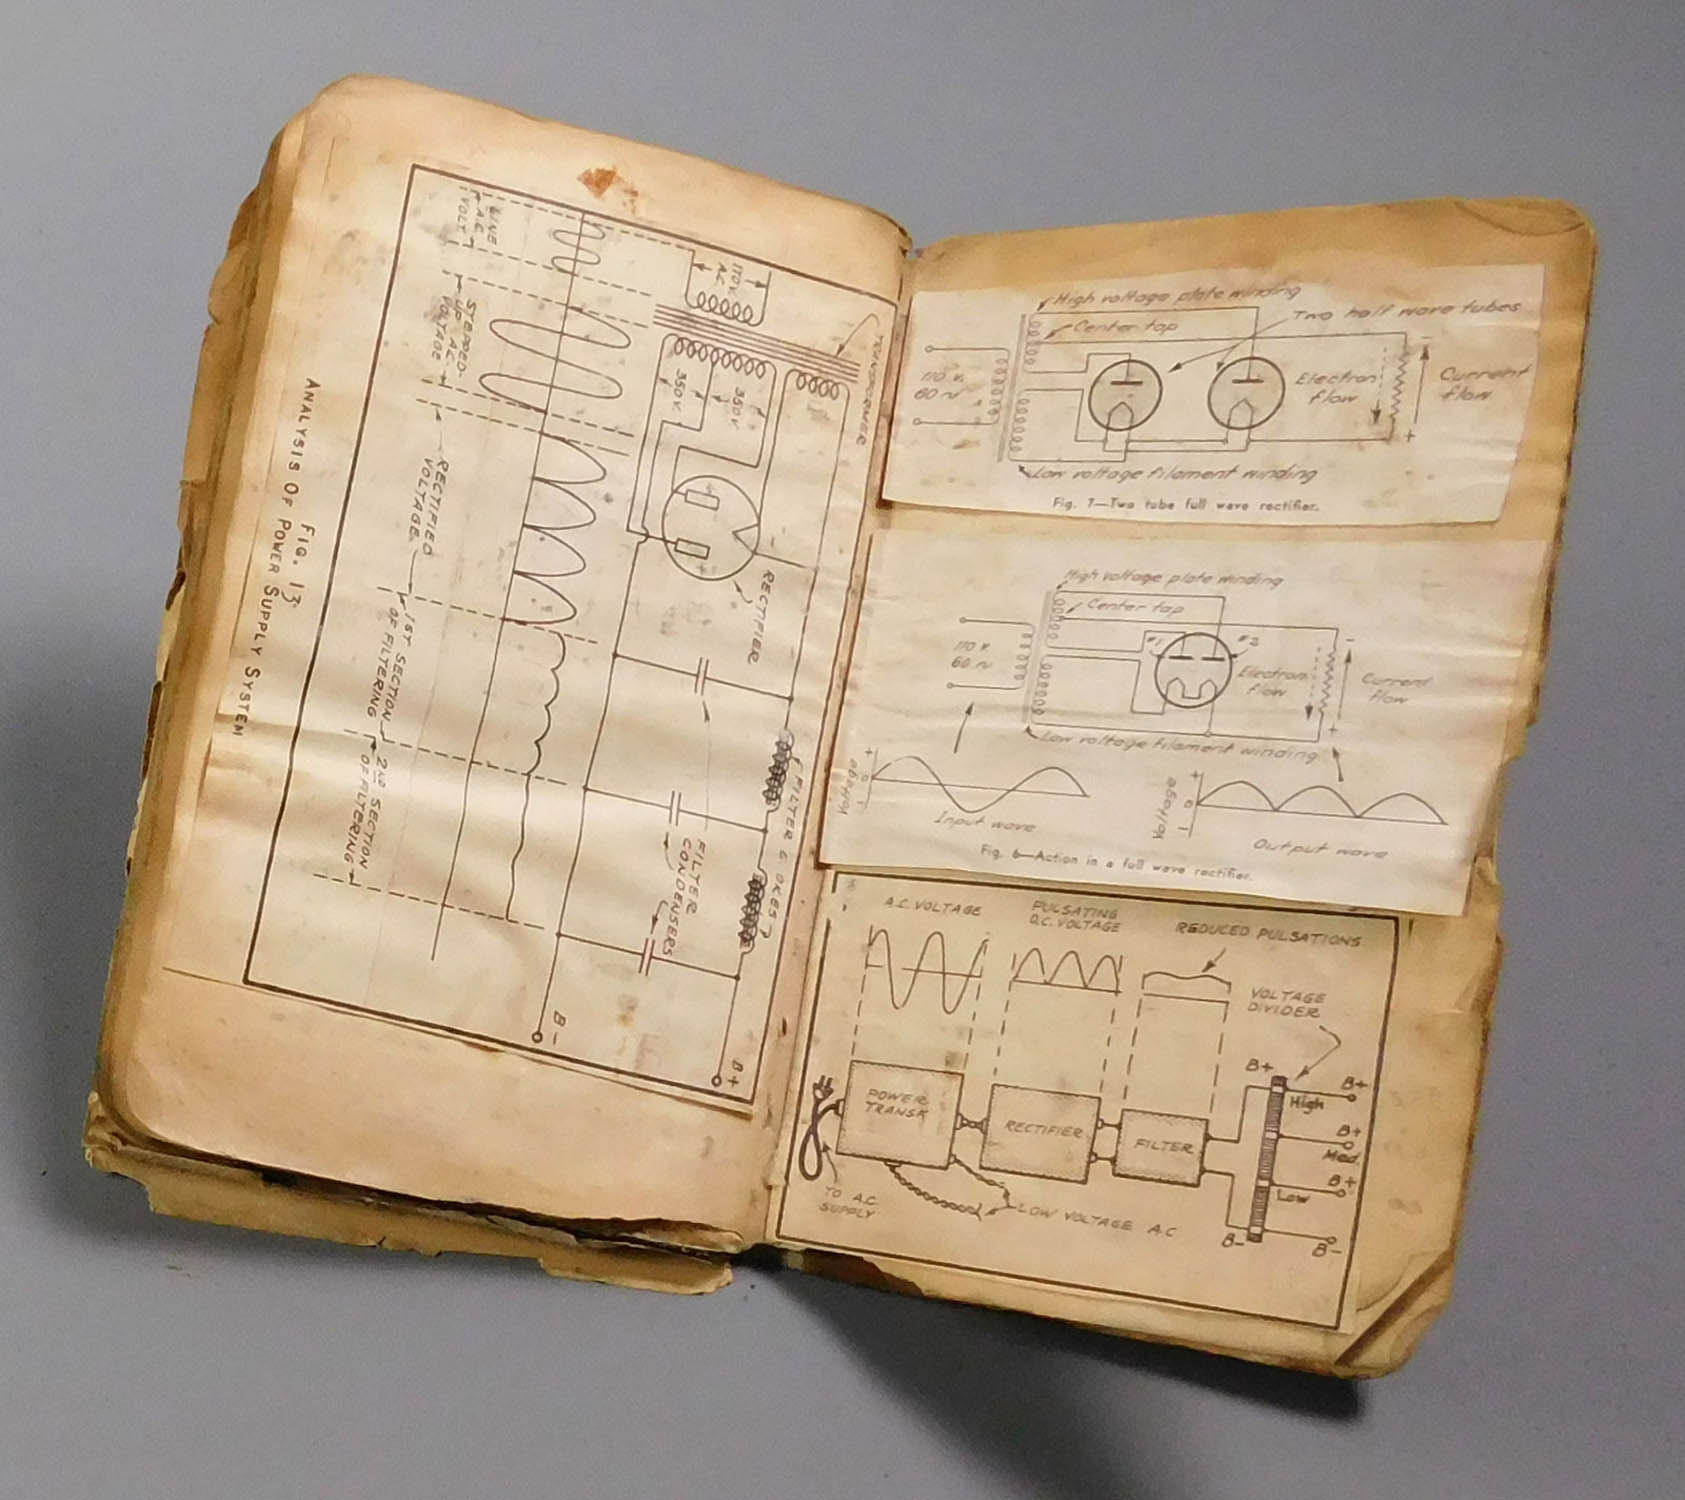 TRANSFORMER
110 V.
A.C.
350 V
350 V.
RECTIFIER
FILTER
CONDENSERS
B+
B-
LINE
A.C.
VOLT.
STEPPED-
UP A.C.
VOLTAGE
RECTIFIED
VOLTAGE
1ST SECTION
OF FILTERING
2ND SECTION
OF FILTERING
FIG. 13
ANALYSIS OF POWER SUPPLY SYSTEM
High voltage plate winding
Two half wave tubes
Center tap
110 v.
60 ~
Electron
flow
Current
flow
-
+
Low voltage filament winding
Fig. 7—Two tube full wave rectifier.
High voltage plate winding
Center tap
#1
#2
110 v.
60 ~
Electron
flow
Current
flow
-
+
Low voltage filament winding
Voltage
+
0
-
Input wave
Voltage
+
0
-
Output wave
Fig. 6—Action in a full wave rectifier.
A.C. VOLTAGE
PULSATING
D.C. VOLTAGE
REDUCED PULSATIONS
VOLTAGE
DIVIDER
POWER
TRANSF.
RECTIFIER
FILTER
B+
B+
High
B+
Med.
B+
Low
B-
B-
TO A.C.
SUPPLY
LOW VOLTAGE A.C